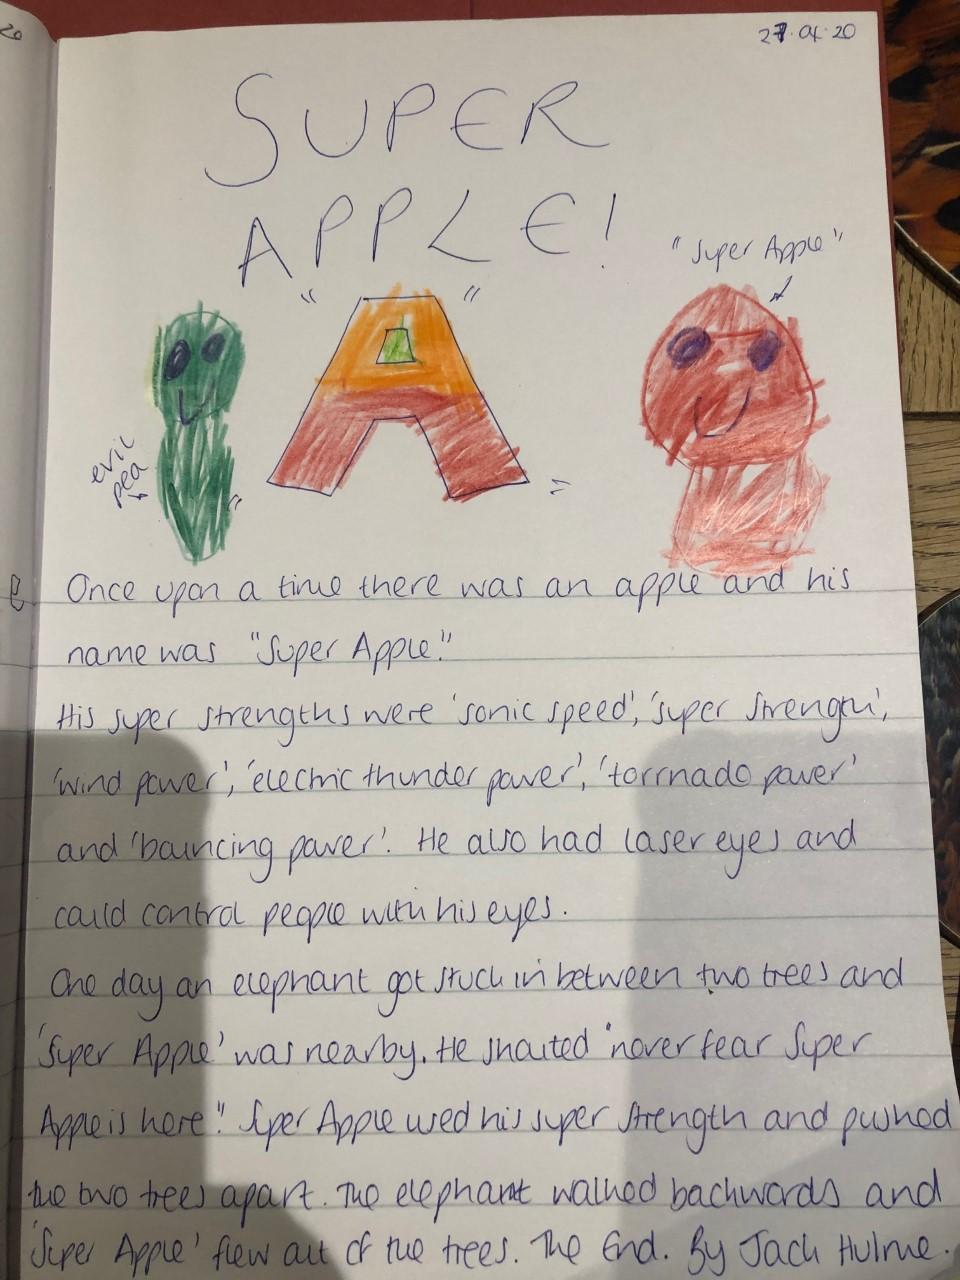 27.04.20
SUPER
APPLE!
"Super Apple"
" A "
evil
pea
Once upon a time there was an apple and his
name was "Super Apple."
His super strengths were 'sonic speed', 'super strength',
'wind power', 'electric thunder power', 'torrnado power'
and 'bouncing power'. He also had laser eyes and
could control people with his eyes.
One day an elephant got stuck in between two trees and
'Super Apple' was nearby. He shouted "never fear Super
Apple is here". Super Apple used his super strength and pushed
the two trees apart. The elephant walked backwards and
'Super Apple' flew out of the trees. The End. By Jack Hulme.